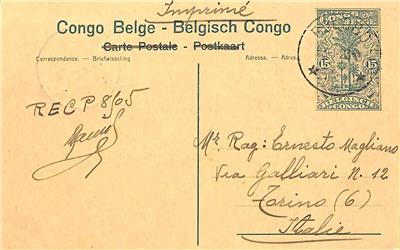 Imprimé
Congo Belge - Belgisch Congo
Carte Postale - Postkaart
Correspondance. — Briefwisseling
Adresse. — Adres.
CONGO BELGE
15 15
BELGISCH
CONGO
RECP 8/05
Mr Rag: Ernesto Magliano
Via Galliari N. 12
Torino (6)
Italie